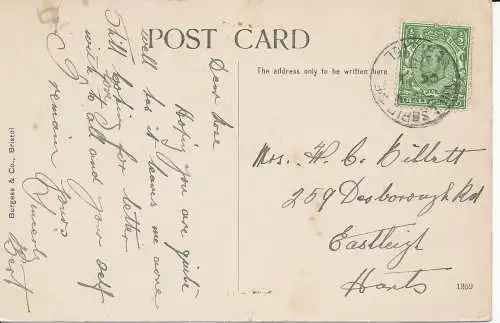 POST CARD
The address only to be written here
Dear Rose
Hoping you are quite
well has it leaves me done
Still looking for letter
with love to all and your self
I remain Yours
Sincerly
Bert
Mrs. H. C. Billett
259 Desborough Rd
Eastleigh
Hants
Burgess & Co., Bristol
1359